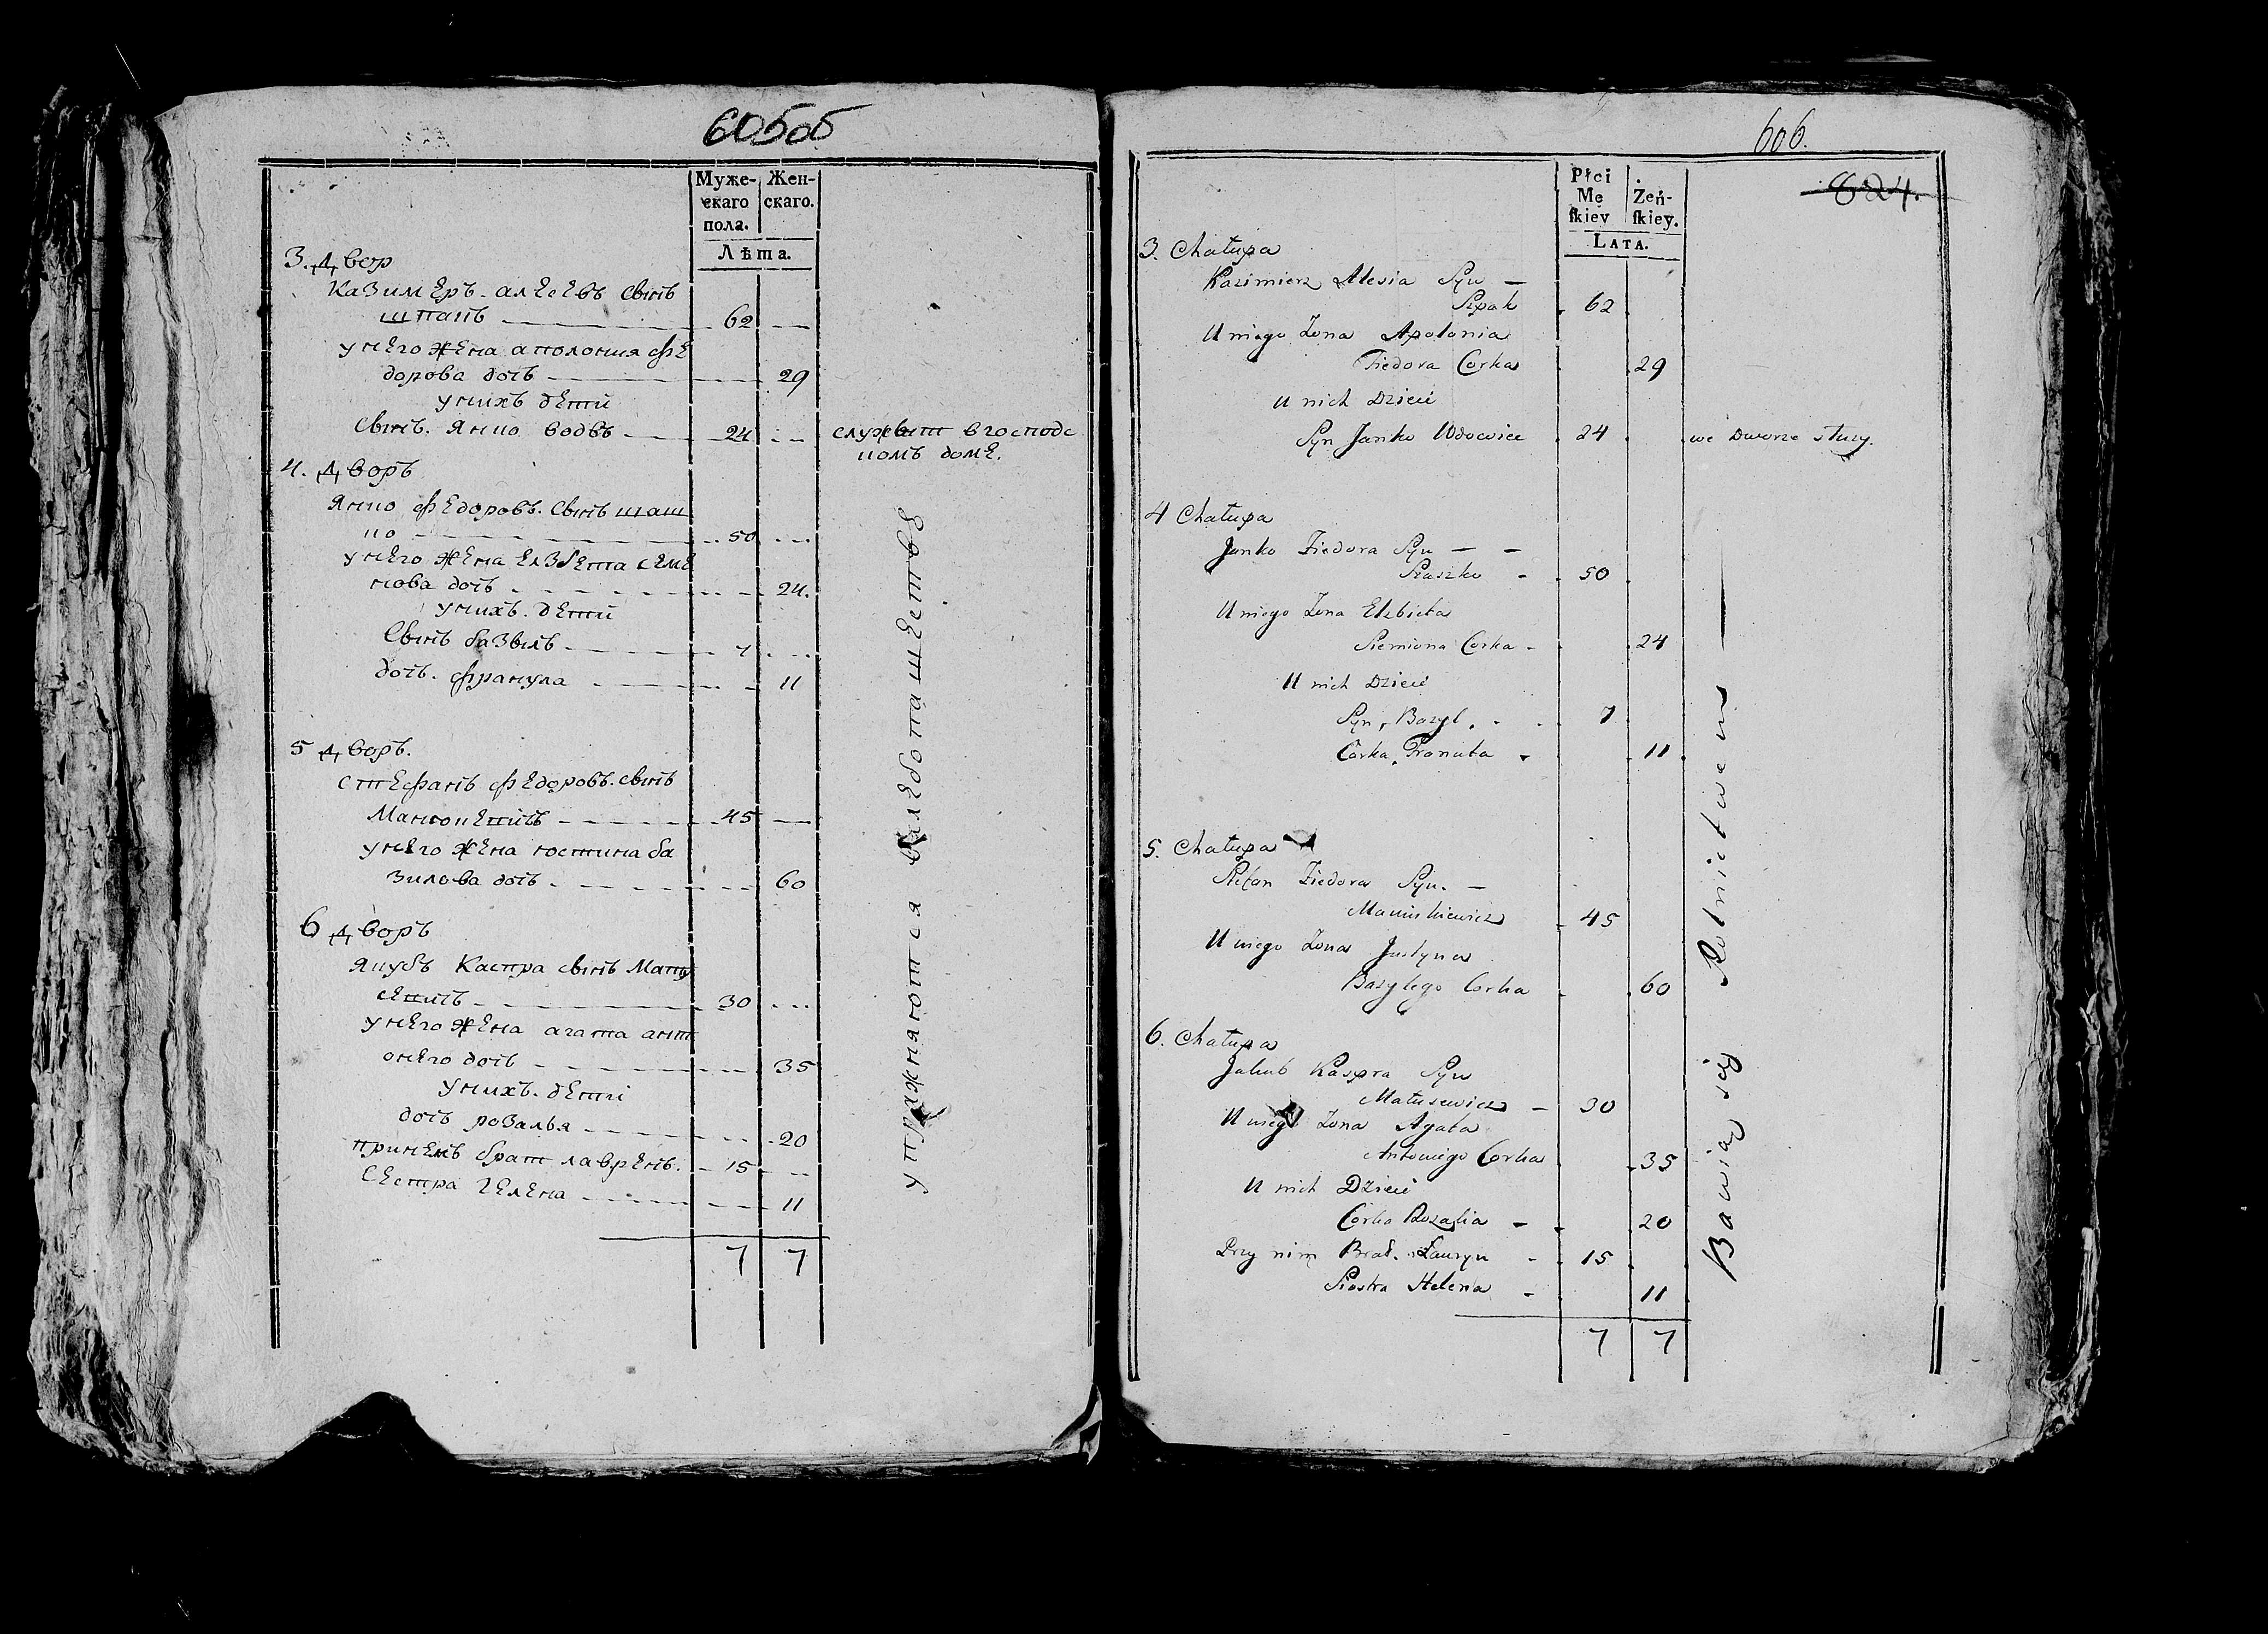 605об
Муже-
скаго
пола.
Жен-
скаго.
Лѣта.
3. Двор
Казимеръ алесевъ свінъ
шпакъ 62
у него жена аполония фе
дорова доч 29
у нихъ дети
Свінъ Янко вдовъ 24
служит в господс
комъ доме.
4. Дворъ
Янко федоровъ свінъ шаш
ко 50
у него жена елзбета семе
нова доч 24.
у нихъ дети
Свінъ базвіль 7
доч франула 11
5 Дворъ.
стефанъ федоровъ свінъ
45
у него жена юстина ба
зилова доч 60
6 Дворъ
Якубъ Каспра свінъ Мату
сечичъ 30
у него жена агата ант
онего доч 35
у нихъ деті
доч розалья 20
при немъ брат лаврень 15
Сестра гелена 11
7 7
упражняются в хлебопашестве
606.
824.
Płci
Mę
ſkiey
Żeń-
ſkiey.
LATA.
3. Chałupa
Kazimierz Alesia Syn —
Szpak 62
U niego Żona Apolonia
Fiedora Corka 29
U nich Dzieci
Syn Janko Wdowiec 24 we Dworze służy.
4 Chałupa
Janko Fiedora Syn — —
Szaszko 50
U niego Żona Elzbieta
Siemiona Corka 24
U nich Dzieci
Syn Bazyl 7
Corka Franuta 11
5. Chałupa
Stefan Fiedora Syn. —
45
U niego Żona Justyna
Bazylego Corka 60
6. Chałupa
Jakub Kaspra Syn
Matusewicz 30
U niego Żona Agata
Antoniego Corka 35
U nich Dzieci
Corka Rozalia 20
Przy nim Brat Ławryn 15
Siostra Helena 11
7 7
Bawią się Rolnictwem —